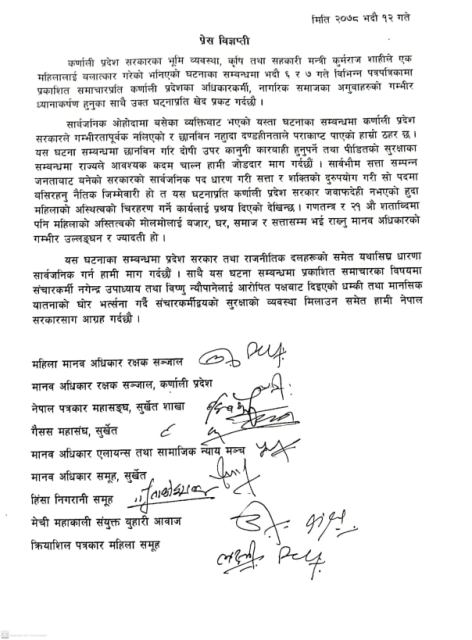 मिति २०७८ भदौ १२ गते
प्रेस विज्ञप्ती
कर्णाली प्रदेश सरकारका भूमि व्यवस्था, कृषि तथा सहकारी मन्त्री कुर्मराज शाहीले एक
महिलालाई बलात्कार गरेको भनिएको घटनाका सम्बन्धमा भदौ ६ र ७ गते विभिन्न पत्रपत्रिकामा
प्रकाशित समाचारप्रति कर्णाली प्रदेशका अधिकारकर्मी, नागरिक समाजका अगुवाहरुको गम्भीर
ध्यानाकर्षण हुनुका साथै उक्त घटनाप्रति खेद प्रकट गर्दछौं ।
सार्वजनिक ओहोदामा बसेका व्यक्तिबाट भएको यस्ता घटनाका सम्बन्धमा कर्णाली प्रदेश
सरकारले गम्भीरतापूर्वक नलिएको र छानविन नहुदा दण्डहीनताले पराकाष्ट पाएको हाम्रो ठहर छ ।
यस घटना सम्बन्धमा छानविन गरि दोषी उपर कानुनी कारवाही हुनुपर्ने तथा पीडितको सुरक्षाका
सम्बन्धमा राज्यले आवश्यक कदम चाल्न हामी जोडदार माग गर्दछौं । सार्वभौम सत्ता सम्पन्न
जनताबाट बनेको सरकारको सार्वजनिक पद धारण गरी सत्ता र शक्तिको दुरुपयोग गरी सो पदमा
बसिरहनु नैतिक जिम्मेवारी हो त यस घटनाप्रति कर्णाली प्रदेश सरकार जवाफदेही नभएको हुदा
महिलाको अस्थित्वको चिरहरण गर्ने कार्यलाई प्रश्रय दिएको देखिन्छ । गणतन्त्र र २१ औ शताब्दिमा
पनि महिलाको अस्तित्वको मोलमोलाई बजार, घर, समाज र सत्तासम्म भई राख्नु मानव अधिकारको
गम्भीर उल्लङ्घन र ज्यादती हो ।
यस घटनाका सम्बन्धमा प्रदेश सरकार तथा राजनीतिक दलहरूको समेत यथासिघ्र धारणा
सार्वजनिक गर्न हामी माग गर्दछौं । साथै यस घटना सम्बन्धमा प्रकाशित समाचारका विषयमा
संचारकर्मी नगेन्द्र उपाध्याय तथा बिष्णु न्यौपानेलाई आरोपित पक्षवाट दिइएको धम्की तथा मानसिक
यातनाको घोर भर्त्सना गर्दै संचारकर्मीद्वयको सुरक्षाको व्यवस्था मिलाउन समेत हामी नेपाल
सरकारसाग आग्रह गर्दछौं ।
महिला मानव अधिकार रक्षक सञ्जाल
मानव अधिकार रक्षक सञ्जाल, कर्णाली प्रदेश
नेपाल पत्रकार महासङ्घ, सुर्खेत शाखा
गैसस महासंघ, सुर्खेत
मानव अधिकार एलायन्स तथा सामाजिक न्याय मञ्च
मानव अधिकार समूह, सुर्खेत
हिंसा निगरानी समूह
मेची महाकाली संयुक्त बुहारी आवाज
क्रियाशिल पत्रकार महिला समूह